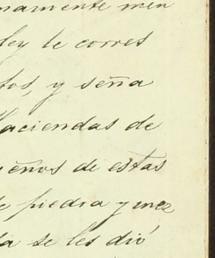 namente men
ley le corres
tos, y seña
Haciendas de
ueños de estas
de piedra y mez
la se les dió